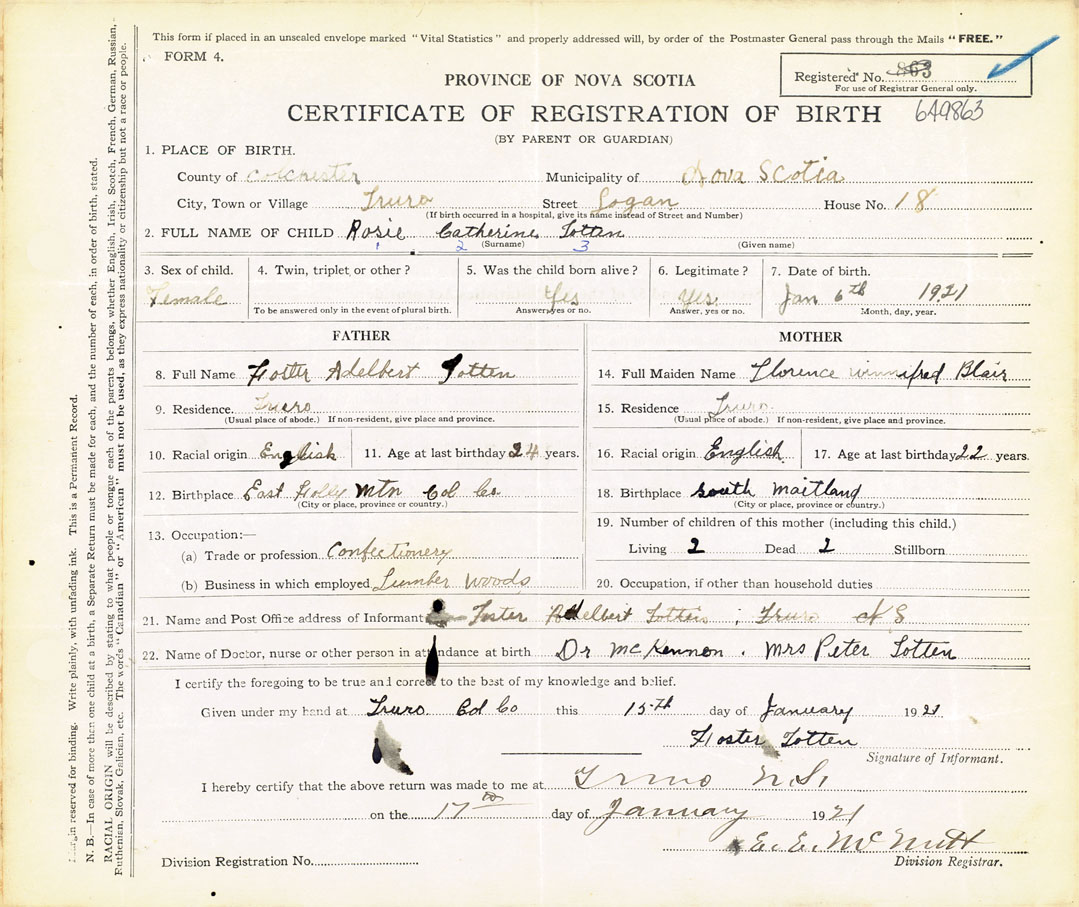 This form if placed in an unsealed envelope marked "Vital Statistics" and properly addressed will, by order of the Postmaster General pass through the Mails "FREE."
FORM 4.
Registered No. 863
For use of Registrar General only.
PROVINCE OF NOVA SCOTIA
CERTIFICATE OF REGISTRATION OF BIRTH 649863
(BY PARENT OR GUARDIAN)
1. PLACE OF BIRTH.
County of Colchester Municipality of Nova Scotia
City, Town or Village Truro Street Logan House No. 18
(If birth occurred in a hospital, give its name instead of Street and Number)
2. FULL NAME OF CHILD Rosie Catherine Totten
1 2 (Surname) 3 (Given name)
3. Sex of child. 4. Twin, triplet or other? 5. Was the child born alive? 6. Legitimate? 7. Date of birth.
Female Yes Yes Jan 6th 1921
To be answered only in the event of plural birth. Answer, yes or no. Answer, yes or no. Month, day, year.
FATHER
8. Full Name Foster Adelbert Totten
9. Residence. Truro
(Usual place of abode.) If non-resident, give place and province.
10. Racial origin English 11. Age at last birthday 24 years.
12. Birthplace East Folly Mtn Col Co
(City or place, province or country.)
13. Occupation:—
(a) Trade or profession Confectionery
(b) Business in which employed Lumber Woods
MOTHER
14. Full Maiden Name Florence Winnifred Blair
15. Residence Truro
(Usual place of abode.) If non-resident, give place and province.
16. Racial origin English 17. Age at last birthday 22 years.
18. Birthplace South Maitland
(City or place, province or country.)
19. Number of children of this mother (including this child.)
Living 2 Dead 2 Stillborn
20. Occupation, if other than household duties
21. Name and Post Office address of Informant Foster Adelbert Totten, Truro N S
22. Name of Doctor, nurse or other person in attendance at birth Dr McKennon. Mrs Peter Totten
I certify the foregoing to be true and correct to the best of my knowledge and belief.
Given under my hand at Truro Col Co this 15th day of January 1921
Foster Totten
Signature of Informant.
I hereby certify that the above return was made to me at Truro N.S.
on the 17th day of January 1921
E. E. McNutt
Division Registrar.
Division Registration No.
Margin reserved for binding. Write plainly, with unfading ink. This is a Permanent Record.
N. B.—In case of more than one child at a birth, a Separate Return must be made for each, and the number of each, in order of birth, stated.
RACIAL ORIGIN will be described by stating to what people or tongue each of the parents belongs, whether English, Irish, Scotch, French, German, Russian,
Ruthenian, Slovak, Galician, etc. The words "Canadian" or "American" must not be used, as they express nationality or citizenship but not a race or people.